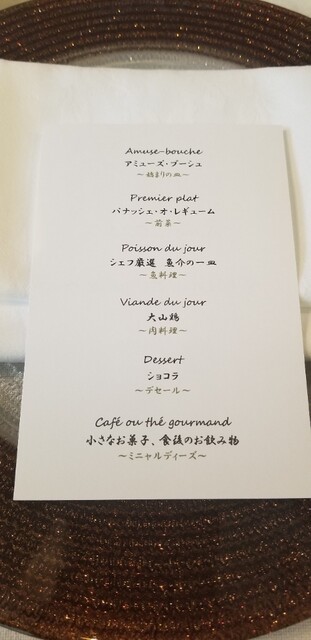 Amuse-bouche
アミューズ・ブーシュ
～始まりの一皿～
Premier plat
パナッシェ・オ・レギューム
～前菜～
Poisson du jour
シェフ厳選 魚介の一皿
～魚料理～
Viande du jour
大山鶏
～肉料理～
Dessert
ショコラ
～デセール～
Café ou thé gourmand
小さなお菓子、食後のお飲み物
～ミニャルディーズ～